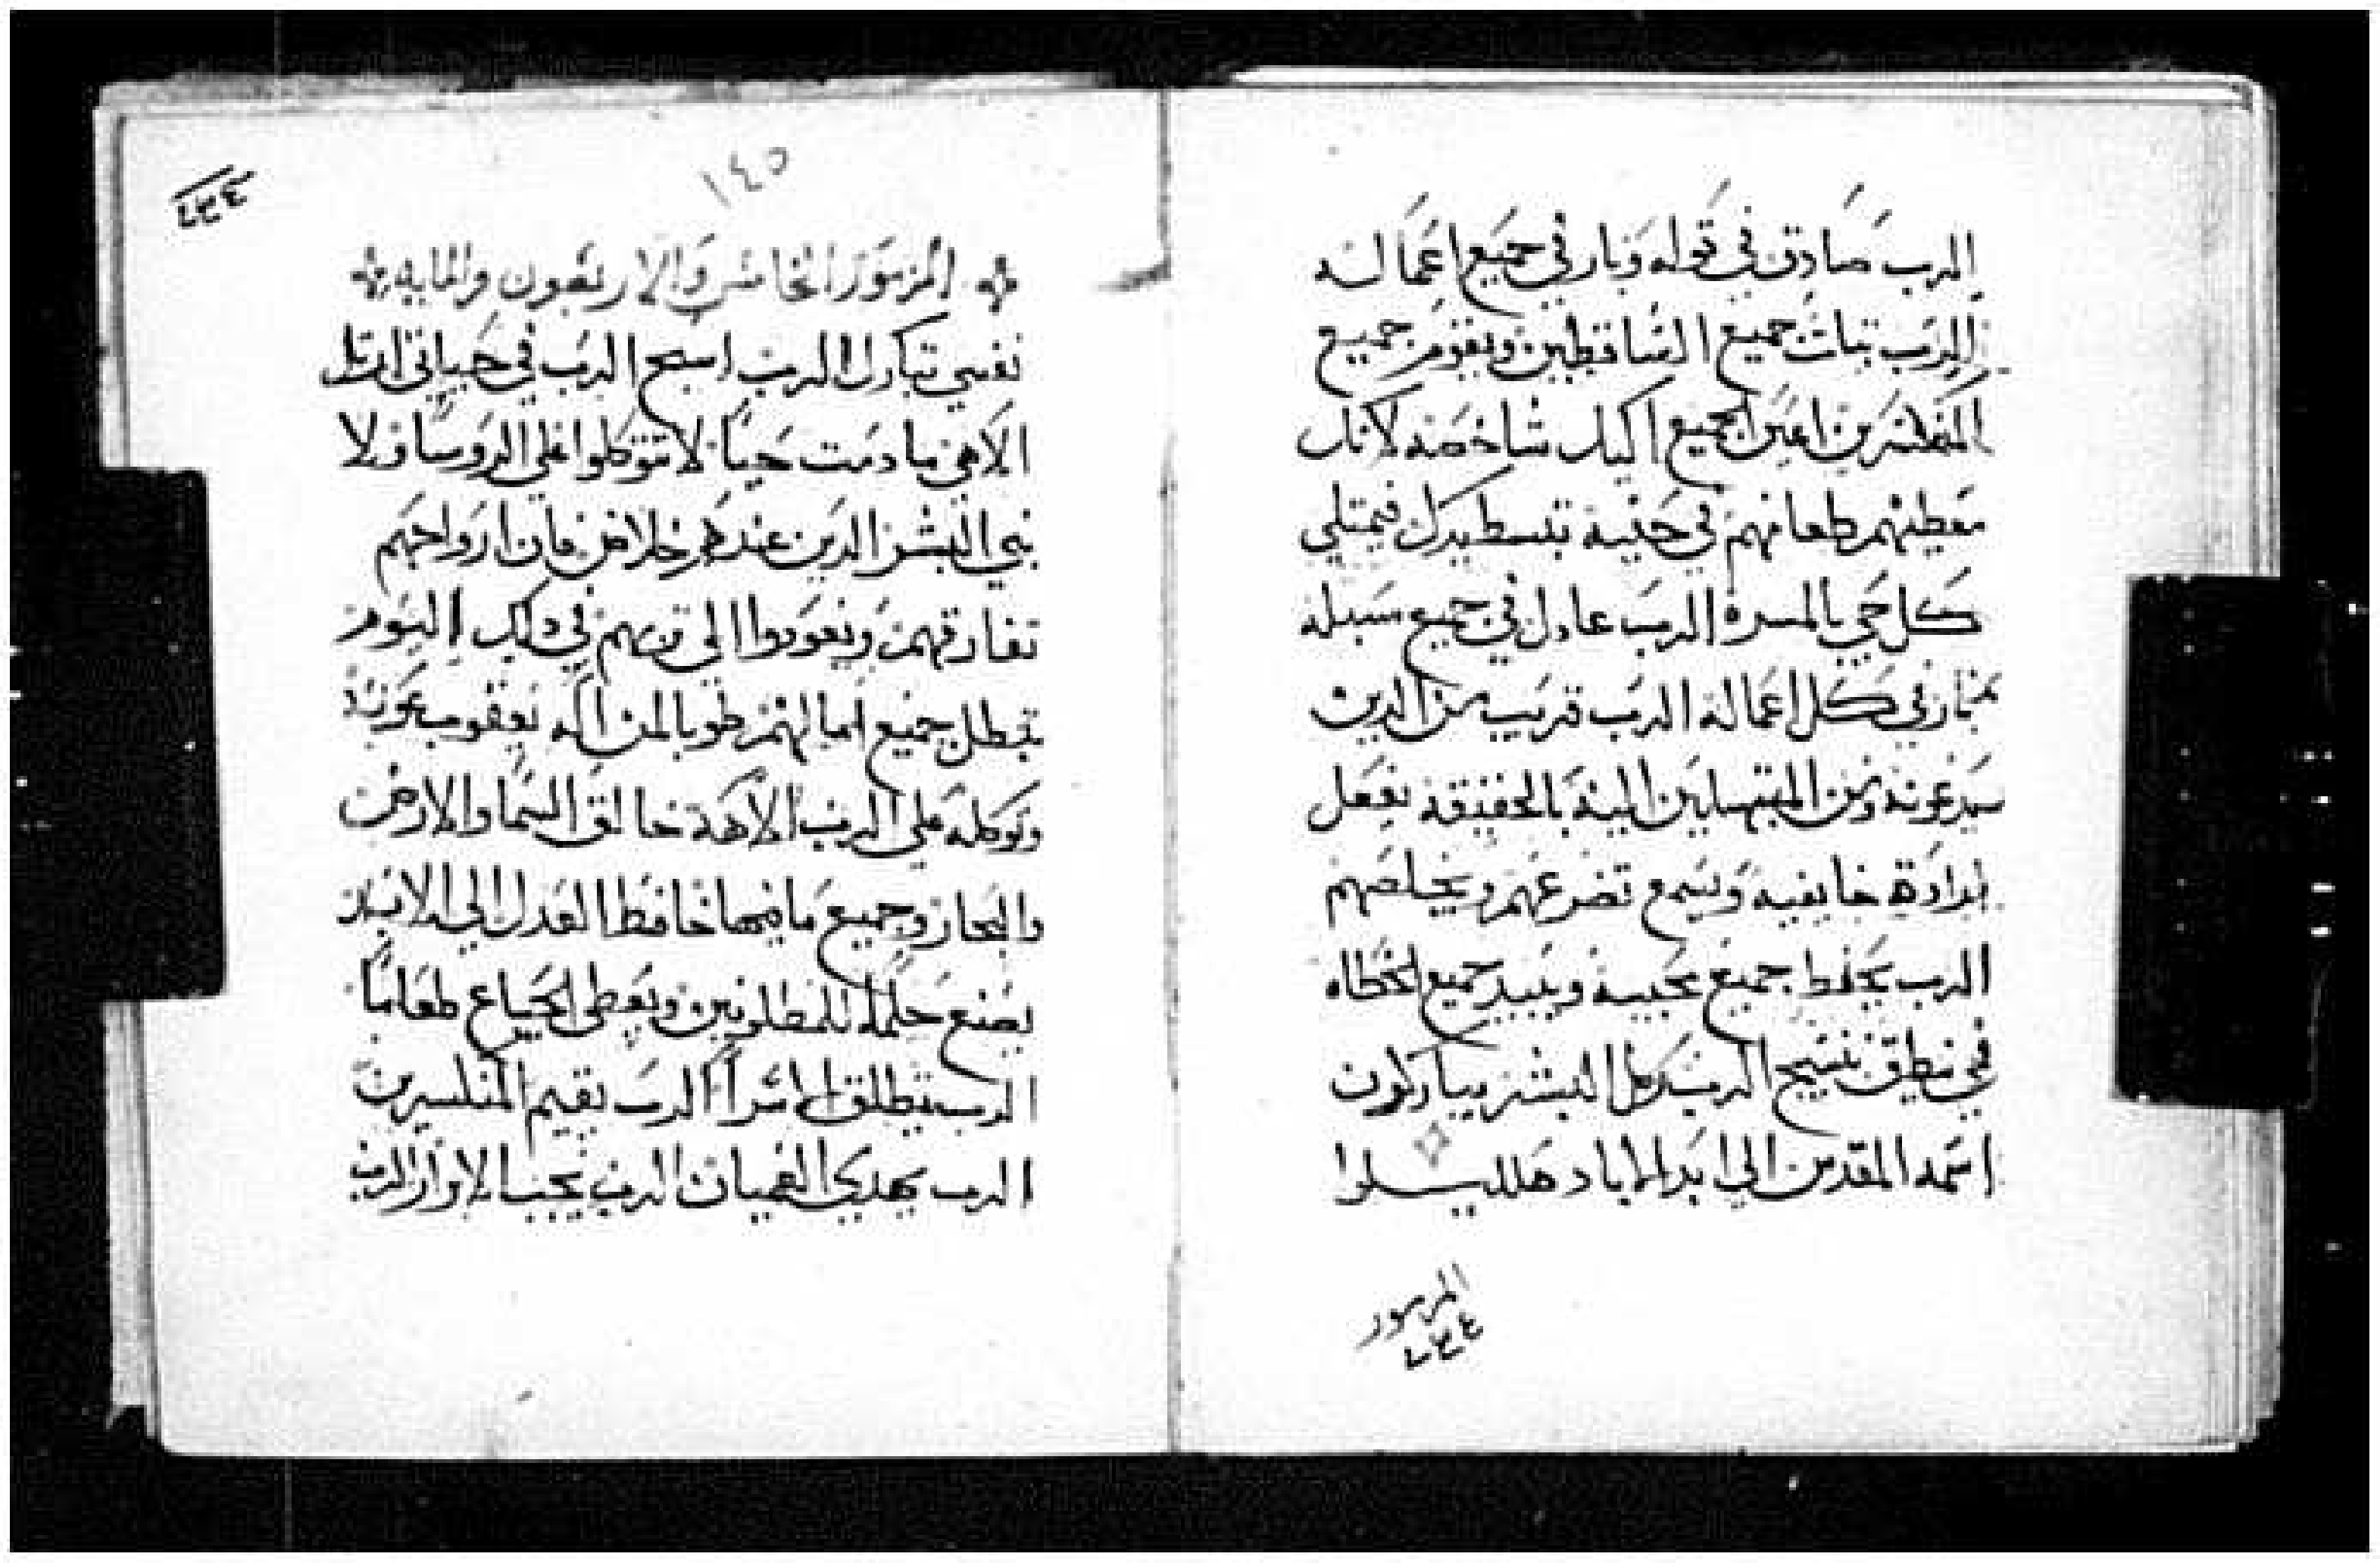 الرب صادق في قوله وبار في جميع اعماله
الرب يثبت جميع الساقطين ويقوم جميع
المنكسرين اعين الجميع اليك شاخصه لانك
معطيهم طعامهم في حينه تبسط يدك فيمتلي
كل حي بالمسره الرب عادل في جميع سبله
بار في كل اعماله الرب قريب من الدين
يدعونه ومن المبتهلين اليه بالحقيقه يفعل
ارادة خايفيه ويسمع تضرعهم ويخلصهم
الرب يحفظ جميع محبيه ويبيد جميع الخطاه
في ينطق بتسبيح الرب وكل البشر يباركون
اسمه القدوس الي ابد الاباد هلليلويا
المزمور
١٤٥
المزمور الخامس والاربعون والمايه
نفسي تبارك الرب اسبح الرب في حياتي ارتل
لالاهي ما دمت حيا لا تتوكلوا علي الروسا ولا
بني البشر الدين ليس عندهم خلاص فان ارواحهم
تفارقهم ويعودوا الي تربهم في دلك اليوم
تبطل جميع اعمالهم طوبا لمن اله يعقوب عونه
وتوكله علي الرب الاهه خالق السما والارض
والبحار وجميع ما فيها حافظ العدل الي الابد
يصنع حكما للمظلومين ويعطي الجياع طعاما
الرب يطلق الاسرا الرب يقيم المنكسرين
الرب يهدي العميان الرب يحب الابرار الرب